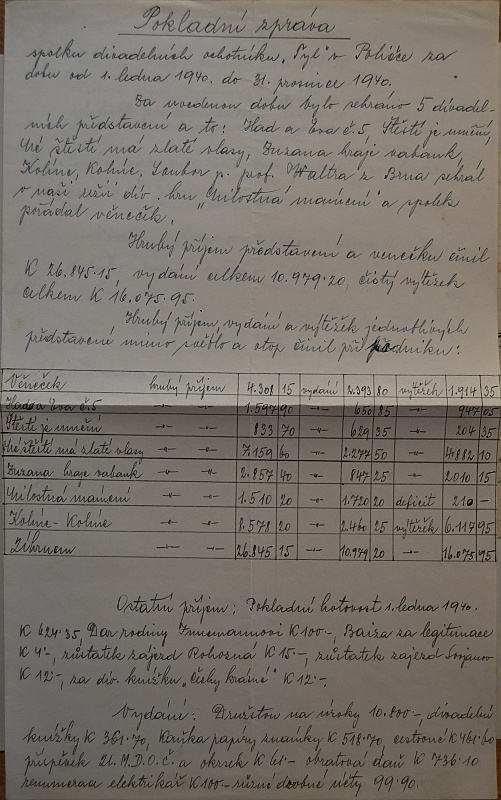 Pokladní zpráva
spolku divadelních ochotníků „Tyl" v Poličce za
dobu od 1. ledna 1940. do 31. prosince 1940.
Za uvedenou dobu bylo sehráno 5 divadel-
ních představení a to: Had a Eva č.5, Štěstí je umění,
Mé štěstí má zlaté vlasy, Zuzana hraje vabank,
Kolíne, Kolíne, Soubor p. prof. Waltra z Brna sehrál
v naší režii div. hru „Milostná mámení" a spolek
pořádal věneček.
Hrubý příjem představení a venečku činil
K 26.845·15, vydání celkem 10.979·20, čistý výtěžek
celkem K 16.075.95.
Hrubý příjem, vydání a výtěžek jednotlivých
představení mimo světlo a otop činil při podniku:
Věneček hrubý příjem 4.308 15 vydání 2.393 80 výtěžek 1.914 35
Had a Eva č.5 -"- -"- 1.597 90 -"- 650 85 -"- 947 05
Štěstí je umění -"- -"- 833 70 -"- 629 35 -"- 204 35
Mé štěstí má zlaté vlasy -"- -"- 7.159 60 -"- 2.277 50 -"- 4.882 10
Zuzana hraje vabank -"- -"- 2.857 40 -"- 847 25 -"- 2010 15
Milostná mámení -"- -"- 1.510 20 -"- 1.720 20 deficit 210 -
Kolíne - Kolíne -"- -"- 8.578 20 -"- 2.460 25 výtěžek 6.117 95
Úhrnem -"- -"- 26.845 15 -"- 10.979 20 -"- 16.075 95
Ostatní příjem: Pokladní hotovost 1. ledna 1940.
K 624·35, Dar rodiny K 100-, za legitimace
K 4·-, zůstatek zájezd Rohozná K 15-, zůstatek zajezd
K 12·-, za div. knížku „Česky " K 12·-.
Vydání: Družstvu na úroky 10.800-, divadelní
knížky K 361.70, papíry známky K 518.70, cestovné K 461.60
příspěvek M.D.O.Č. a okrsek K 61- obratová daň K 736.10
remunerace elektrikář K 100- různé drobné účty 99.90.